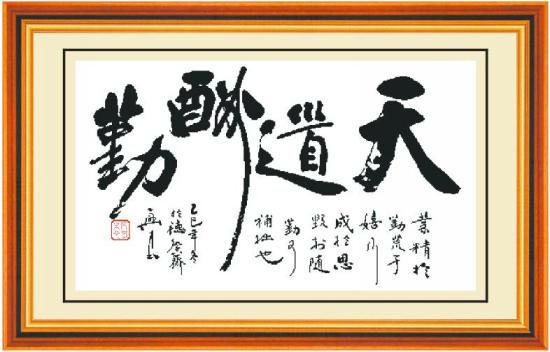 天道酬勤
業精於
勤荒于
嬉行
成於思
毀於随
勤可
補拙也
乙巳年冬